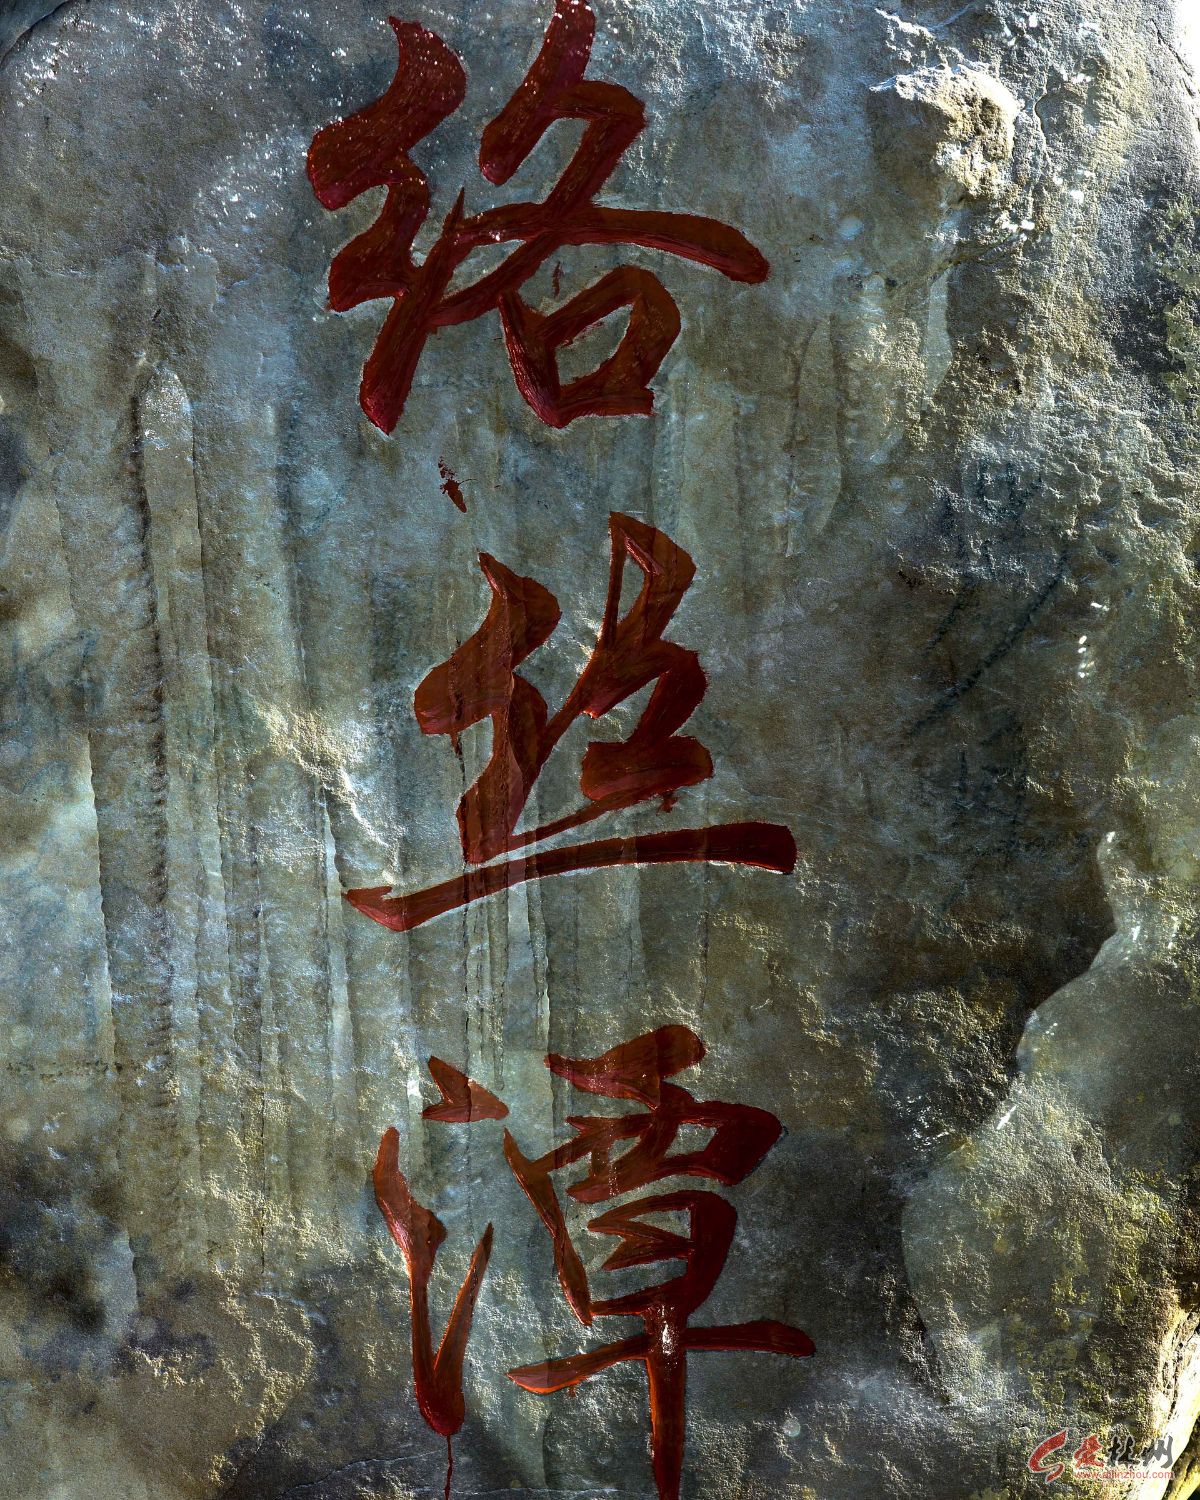 络丝潭
爱林州
www.ailinzhou.com